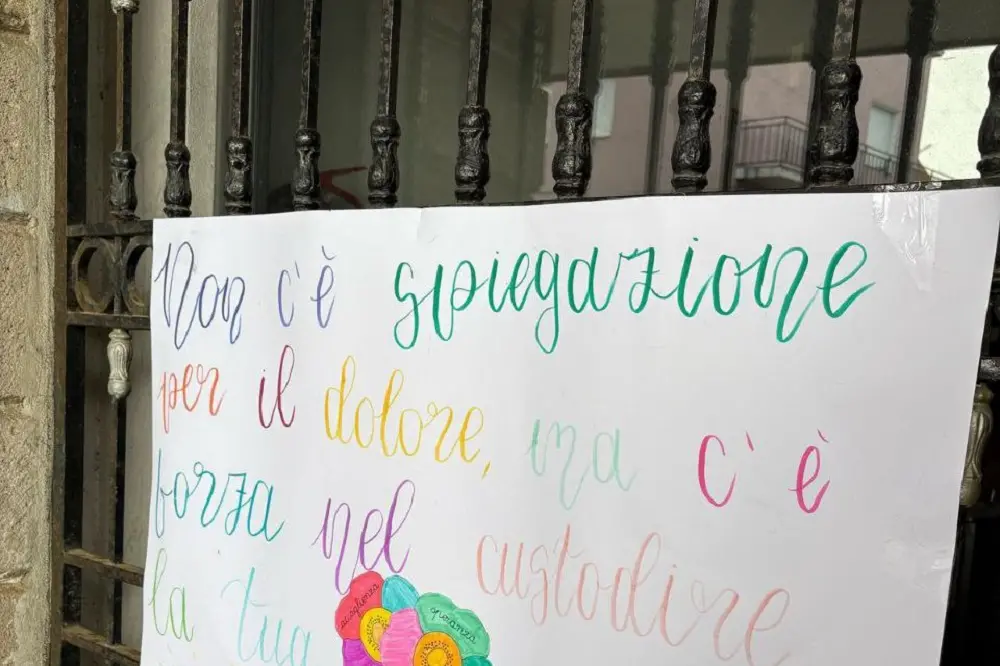 Non c'è spiegazione
per il dolore, ma c'è
forza nel custodire
la tua
accoglienza
speranza